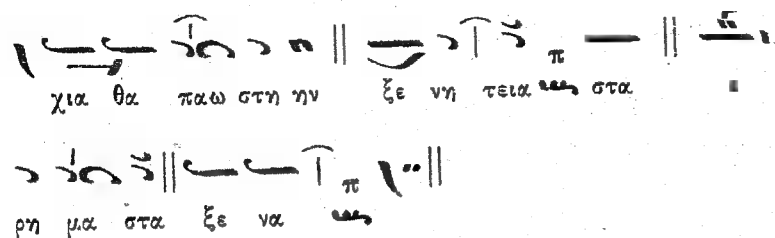 χια θα παω στη ην ξε νη τεια π στα
ρη μα στα ξε να π